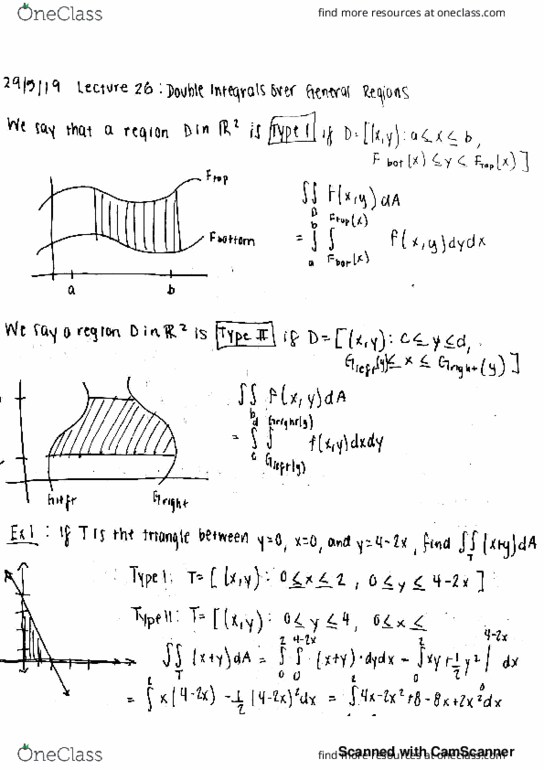 OneClass
find more resources at oneclass.com
29/5/19 Lecture 26: Double Integrals over General Regions
We say that a region D in ℝ² is Type I if D=[(x,y): a≤x≤b,
Fbot(x)≤y≤Ftop(x)]
Ftop
Fbottom
a b
∬ f(x,y)dA
D
b Ftop(x)
= ∫ ∫ f(x,y)dydx
a Fbot(x)
We say a region D in ℝ² is Type II if D=[(x,y): c≤y≤d,
Gleft(y)≤x≤Gright(y)]
Gleft Gright
∬ f(x,y)dA
D
d Gright(y)
= ∫ ∫ f(x,y)dxdy
c Gleft(y)
Ex1: If T is the triangle between y=0, x=0, and y=4-2x, find ∬T (x+y)dA
Type I: T=[(x,y): 0≤x≤2, 0≤y≤4-2x]
Type II: T=[(x,y): 0≤y≤4, 0≤x≤
∬T (x+y)dA = ∫₀² ∫₀^(4-2x) (x+y)·dydx = ∫₀² xy+½y² |₀^(4-2x) dx
= ∫₀² x(4-2x) - ½(4-2x)² dx = ∫₀² 4x-2x²+8-8x+2x² dx
Scanned with CamScanner
OneClass
find more resources at oneclass.com